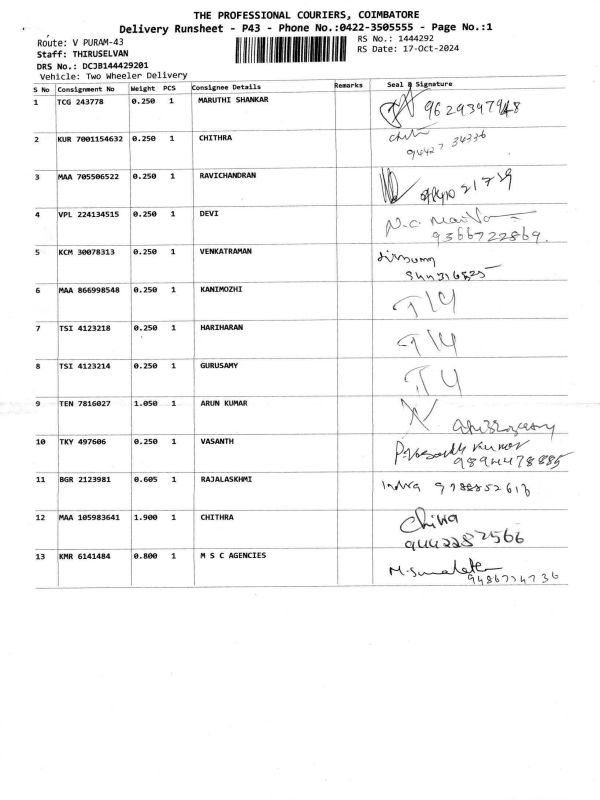 THE PROFESSIONAL COURIERS, COIMBATORE
Delivery Runsheet - P43 - Phone No.:0422-3505555 - Page No.:1
Route: V PURAM-43
RS No.: 1444292
Staff: THIRUSELVAN
RS Date: 17-Oct-2024
DRS No.: DCJB144429201
Vehicle: Two Wheeler Delivery
S No Consignment No Weight PCS Consignee Details Remarks Seal & Signature
1 TCG 243778 0.250 1 MARUTHI SHANKAR
2 KUR 7001154632 0.250 1 CHITHRA
3 MAA 705506522 0.250 1 RAVICHANDRAN
4 VPL 224134515 0.250 1 DEVI
9366722869.
5 KCM 30078313 0.250 1 VENKATRAMAN
6 MAA 866998548 0.250 1 KANIMOZHI
7 TSI 4123218 0.250 1 HARIHARAN
8 TSI 4123214 0.250 1 GURUSAMY
9 TEN 7816027 1.050 1 ARUN KUMAR
10 TKY 497606 0.250 1 VASANTH
9894478885
11 BGR 2123981 0.605 1 RAJALASKHMI
Indira
12 MAA 105983641 1.900 1 CHITHRA
9442282566
13 KMR 6141484 0.800 1 M S C AGENCIES